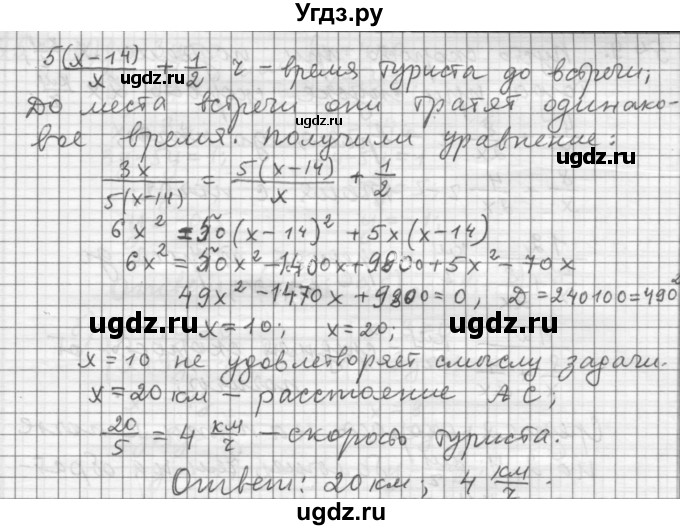 Угдз.ру
5(x-14)/x + 1/2 ч - время туриста до встречи;
До места встречи они тратят одинако-
вое время. Получили уравнение:
3x/5(x-14) = 5(x-14)/x + 1/2
6x² = 50(x-14)² + 5x(x-14)
6x² = 50x² - 1400x + 9800 + 5x² - 70x
49x² - 1470x + 9800 = 0, D = 240100 = 490²
x = 10; x = 20;
x = 10 не удовлетворяет смыслу задачи.
x = 20 км - расстояние АС;
20/5 = 4 км/ч - скорость туриста.
Ответ: 20 км; 4 км/ч.
ugdz.ru
ugdz.ru
ugdz.ru
ugdz.ru
ugdz.ru
ugdz.ru
ugdz.ru
ugdz.ru
ugdz.ru